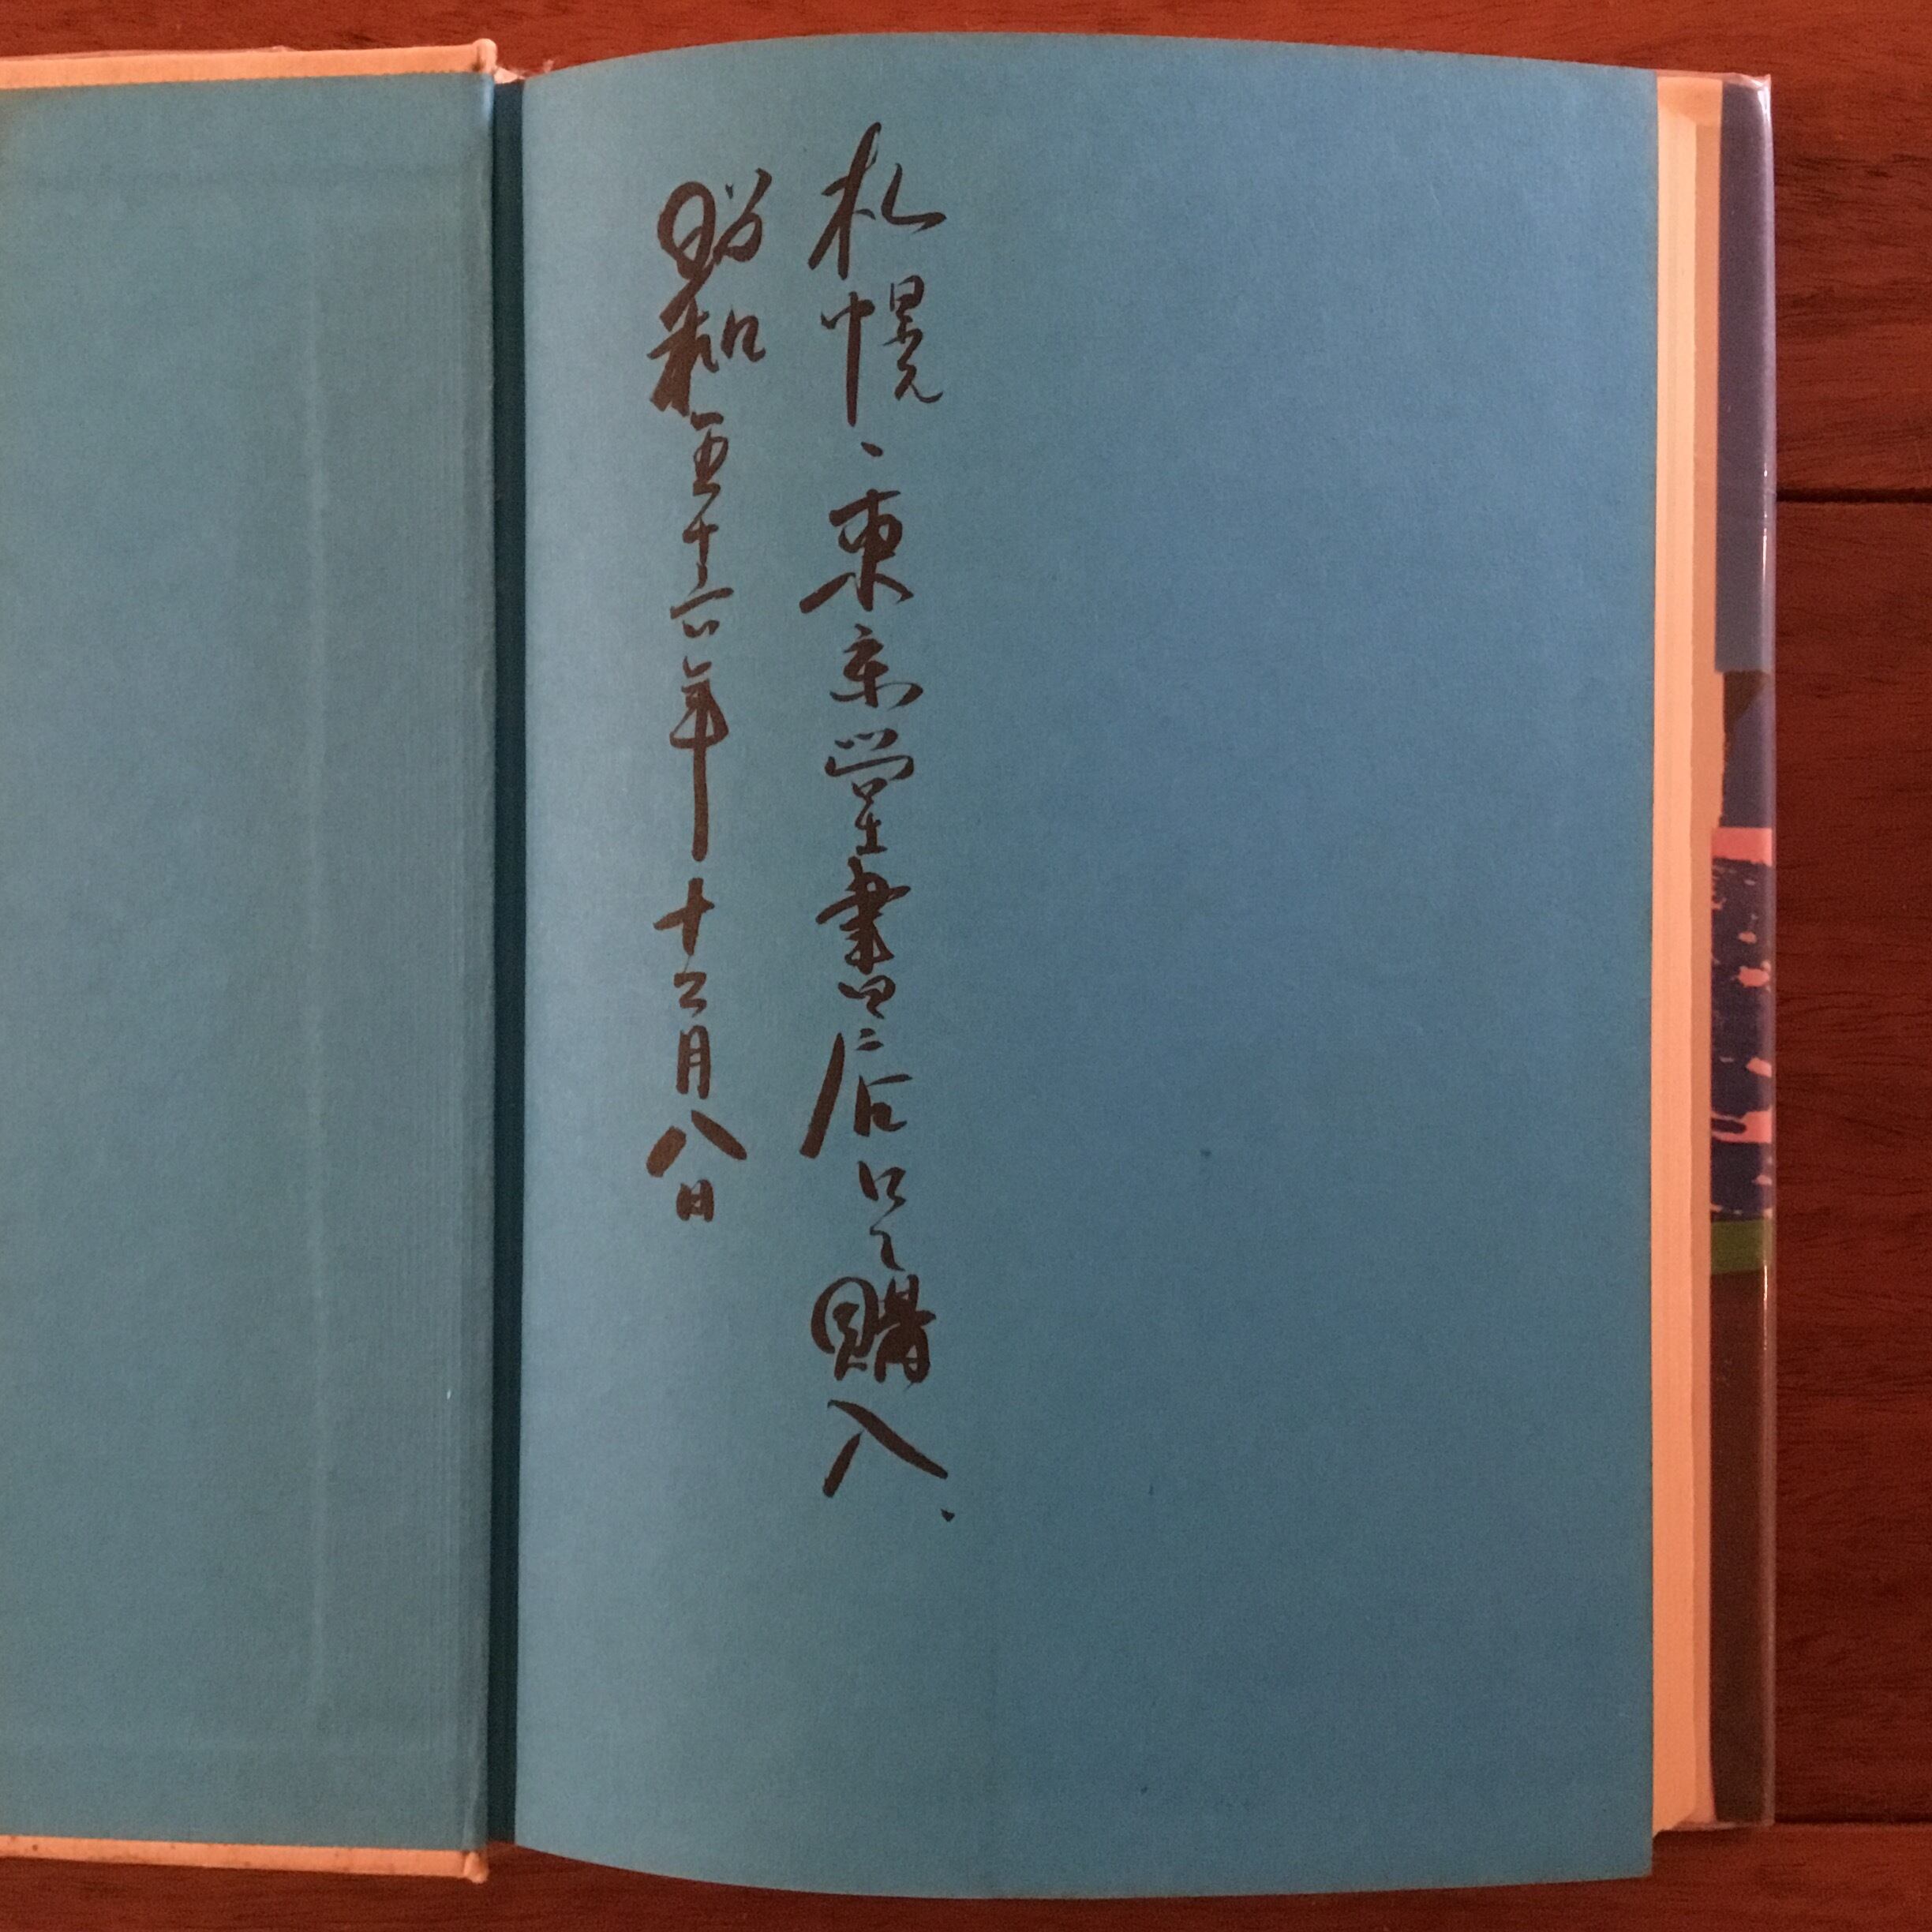 札幌、東京堂書店にて購入.
昭和五十六年十二月八日